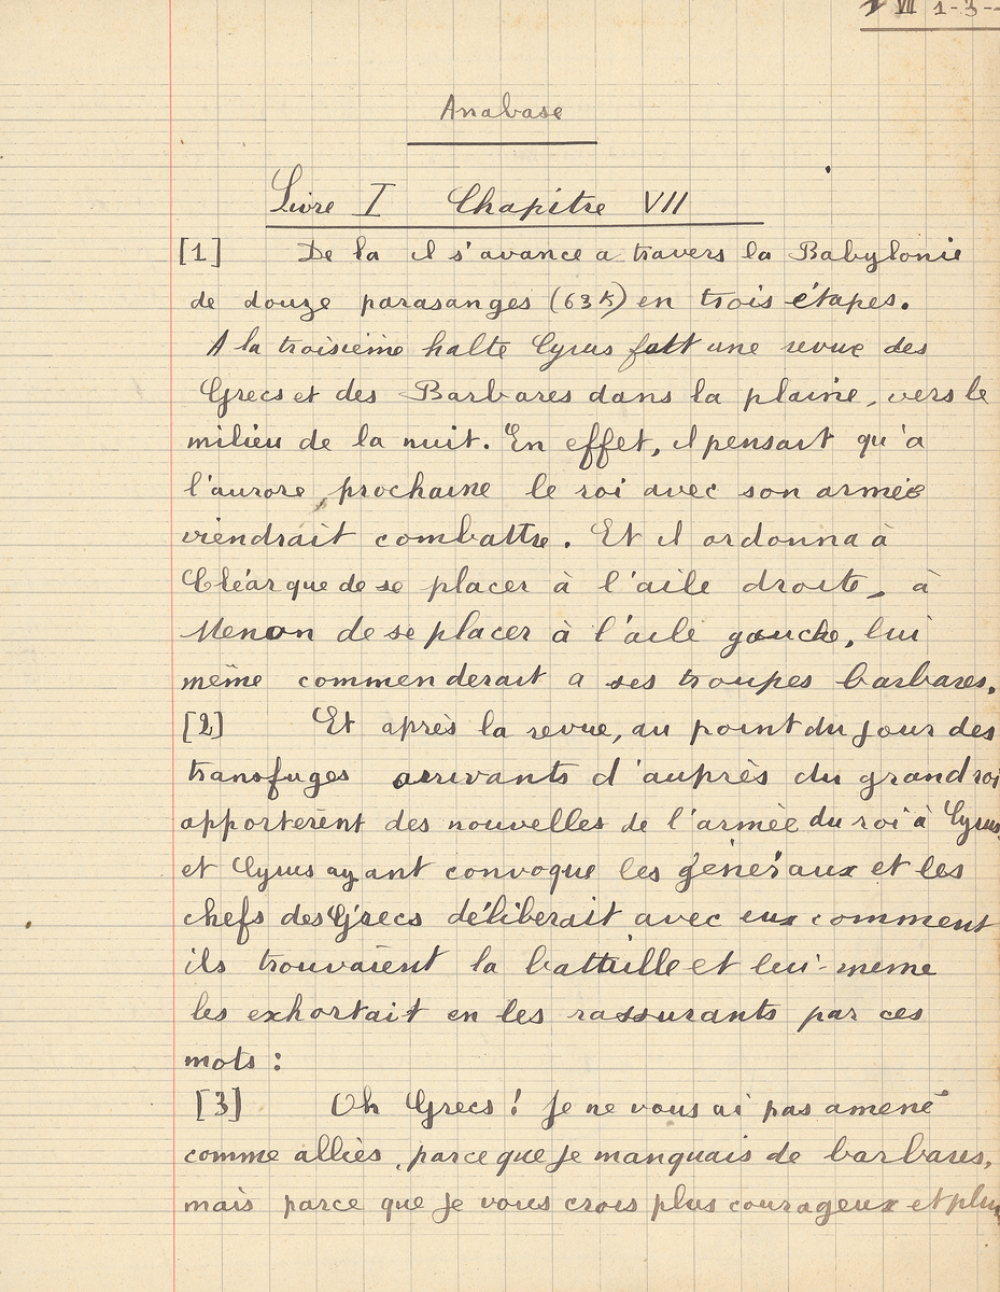 VII 1-3-
Anabase
Livre I Chapitre VII
[1] De la il s'avance a travers la Babylonie
de douze parasanges (63 k) en trois étapes.
A la troisième halte Cyrus fait une revue des
Grecs et des Barbares dans la plaine, vers le
milieu de la nuit. En effet, il pensait qu'a
l'aurore prochaine le roi avec son armée
viendrait combattre. Et il ordonna à
Cléarque de se placer à l'aile droite, à
Menon de se placer à l'aile gauche, lui
même commenderait a ses troupes barbares.
[2] Et après la revue, au point du jour des
transfuges arrivants d'auprès du grand roi
apportèrent des nouvelles de l'armée du roi à Cyrus,
et Cyrus ayant convoque les généraux et les
chefs des Grecs délibérait avec eux comment
ils trouvaient la battaille et lui-meme
les exhortait en les rassurants par ces
mots :
[3] Oh Grecs ! Je ne vous ai pas amené
comme alliès, parce que je manquais de barbares,
mais parce que je vous crois plus courageux et plus